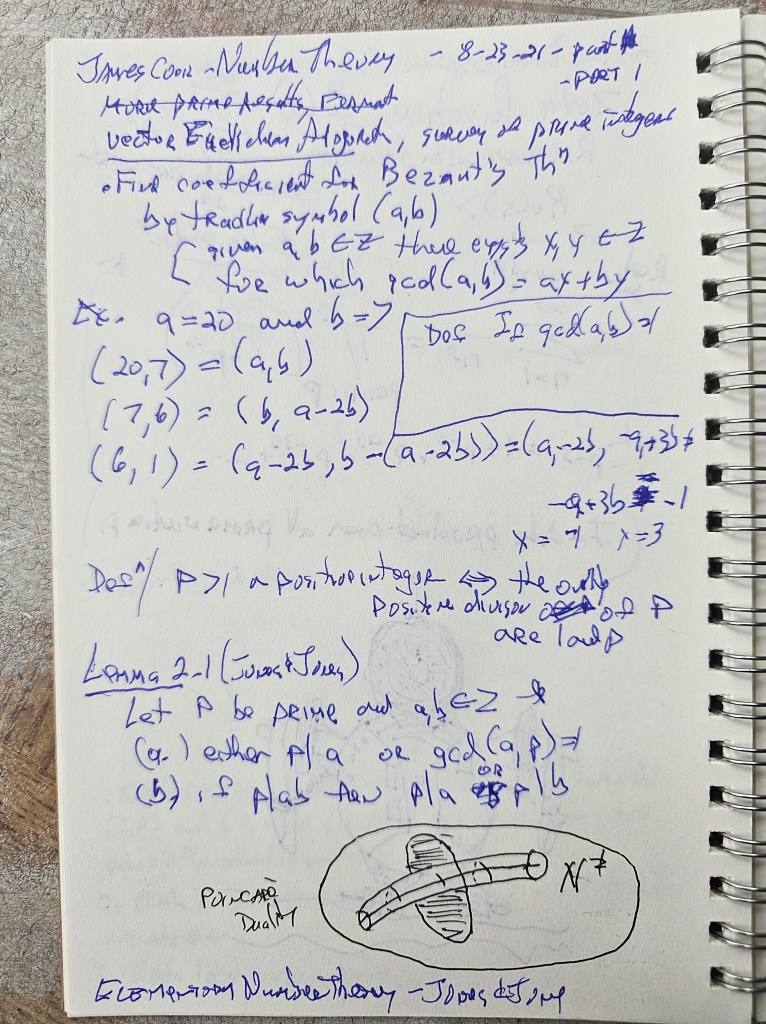 James Cook - Number Theory - 8-23-21 - part
- PART 1
More prime Results, Fermat
vector Euclidean Algorith, survey of prime integers
• Find coefficient for Bezout's Thⁿ
by tradin symbol (a,b)
{ given a, b ∈ Z there exists x, y ∈ Z
for which gcd(a,b) = ax + by
Ex. a = 20 and b = 7
Def If gcd(a,b) = 1
(20,7) = (a,b)
(7,6) = (b, a-2b)
(6,1) = (a-2b, b-(a-2b)) = (a,-2b, -a+3b)
-a+3b = 1
x = -1 y = 3
Defⁿ/ P>1 a positive integer ⇔ the only
positive divisor of P
are 1 and p
Lemma 2-1 (Jones & Jones)
Let P be prime and a,b ∈ Z
(a.) either p|a or gcd(a,p) = 1
(b) if p|ab then p|a or p|b
Poincarè
Duality
N⁷
Elementary Number Theory - Jones & Jone